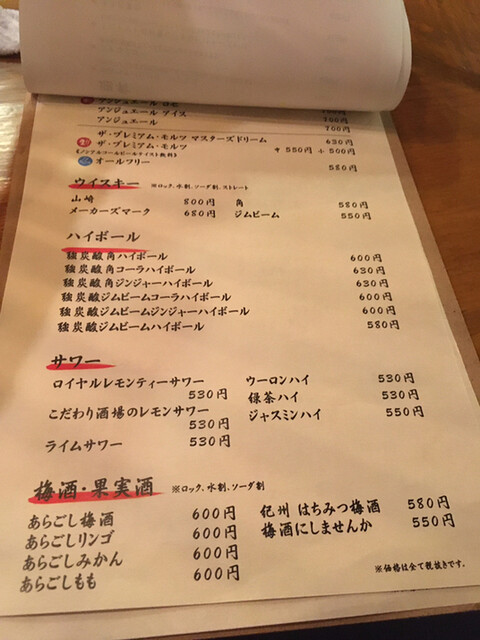 アンジュエール ロゼ
アンジュエール アイス 700円
アンジュエール 700円
700円
ザ・プレミアム・モルツ マスターズドリーム 630円
ザ・プレミアム・モルツ 中 550円 小 500円
《ノンアルコールビールテイスト飲料》
オールフリー 580円
ウイスキー ※ロック、水割、ソーダ割、ストレート
山崎 800円 角 580円
メーカーズマーク 680円 ジムビーム 550円
ハイボール
強炭酸角ハイボール 600円
強炭酸角コーラハイボール 630円
強炭酸角ジンジャーハイボール 630円
強炭酸ジムビームコーラハイボール 600円
強炭酸ジムビームジンジャーハイボール 600円
強炭酸ジムビームハイボール 580円
サワー
ロイヤルレモンティーサワー 530円 ウーロンハイ 530円
こだわり酒場のレモンサワー 530円 緑茶ハイ 530円
ライムサワー 530円 ジャスミンハイ 550円
梅酒・果実酒 ※ロック、水割、ソーダ割
あらごし梅酒 600円 紀州 はちみつ梅酒 580円
あらごしリンゴ 600円 梅酒にしませんか 550円
あらごしみかん 600円
あらごしもも 600円
※価格は全て税抜きです。